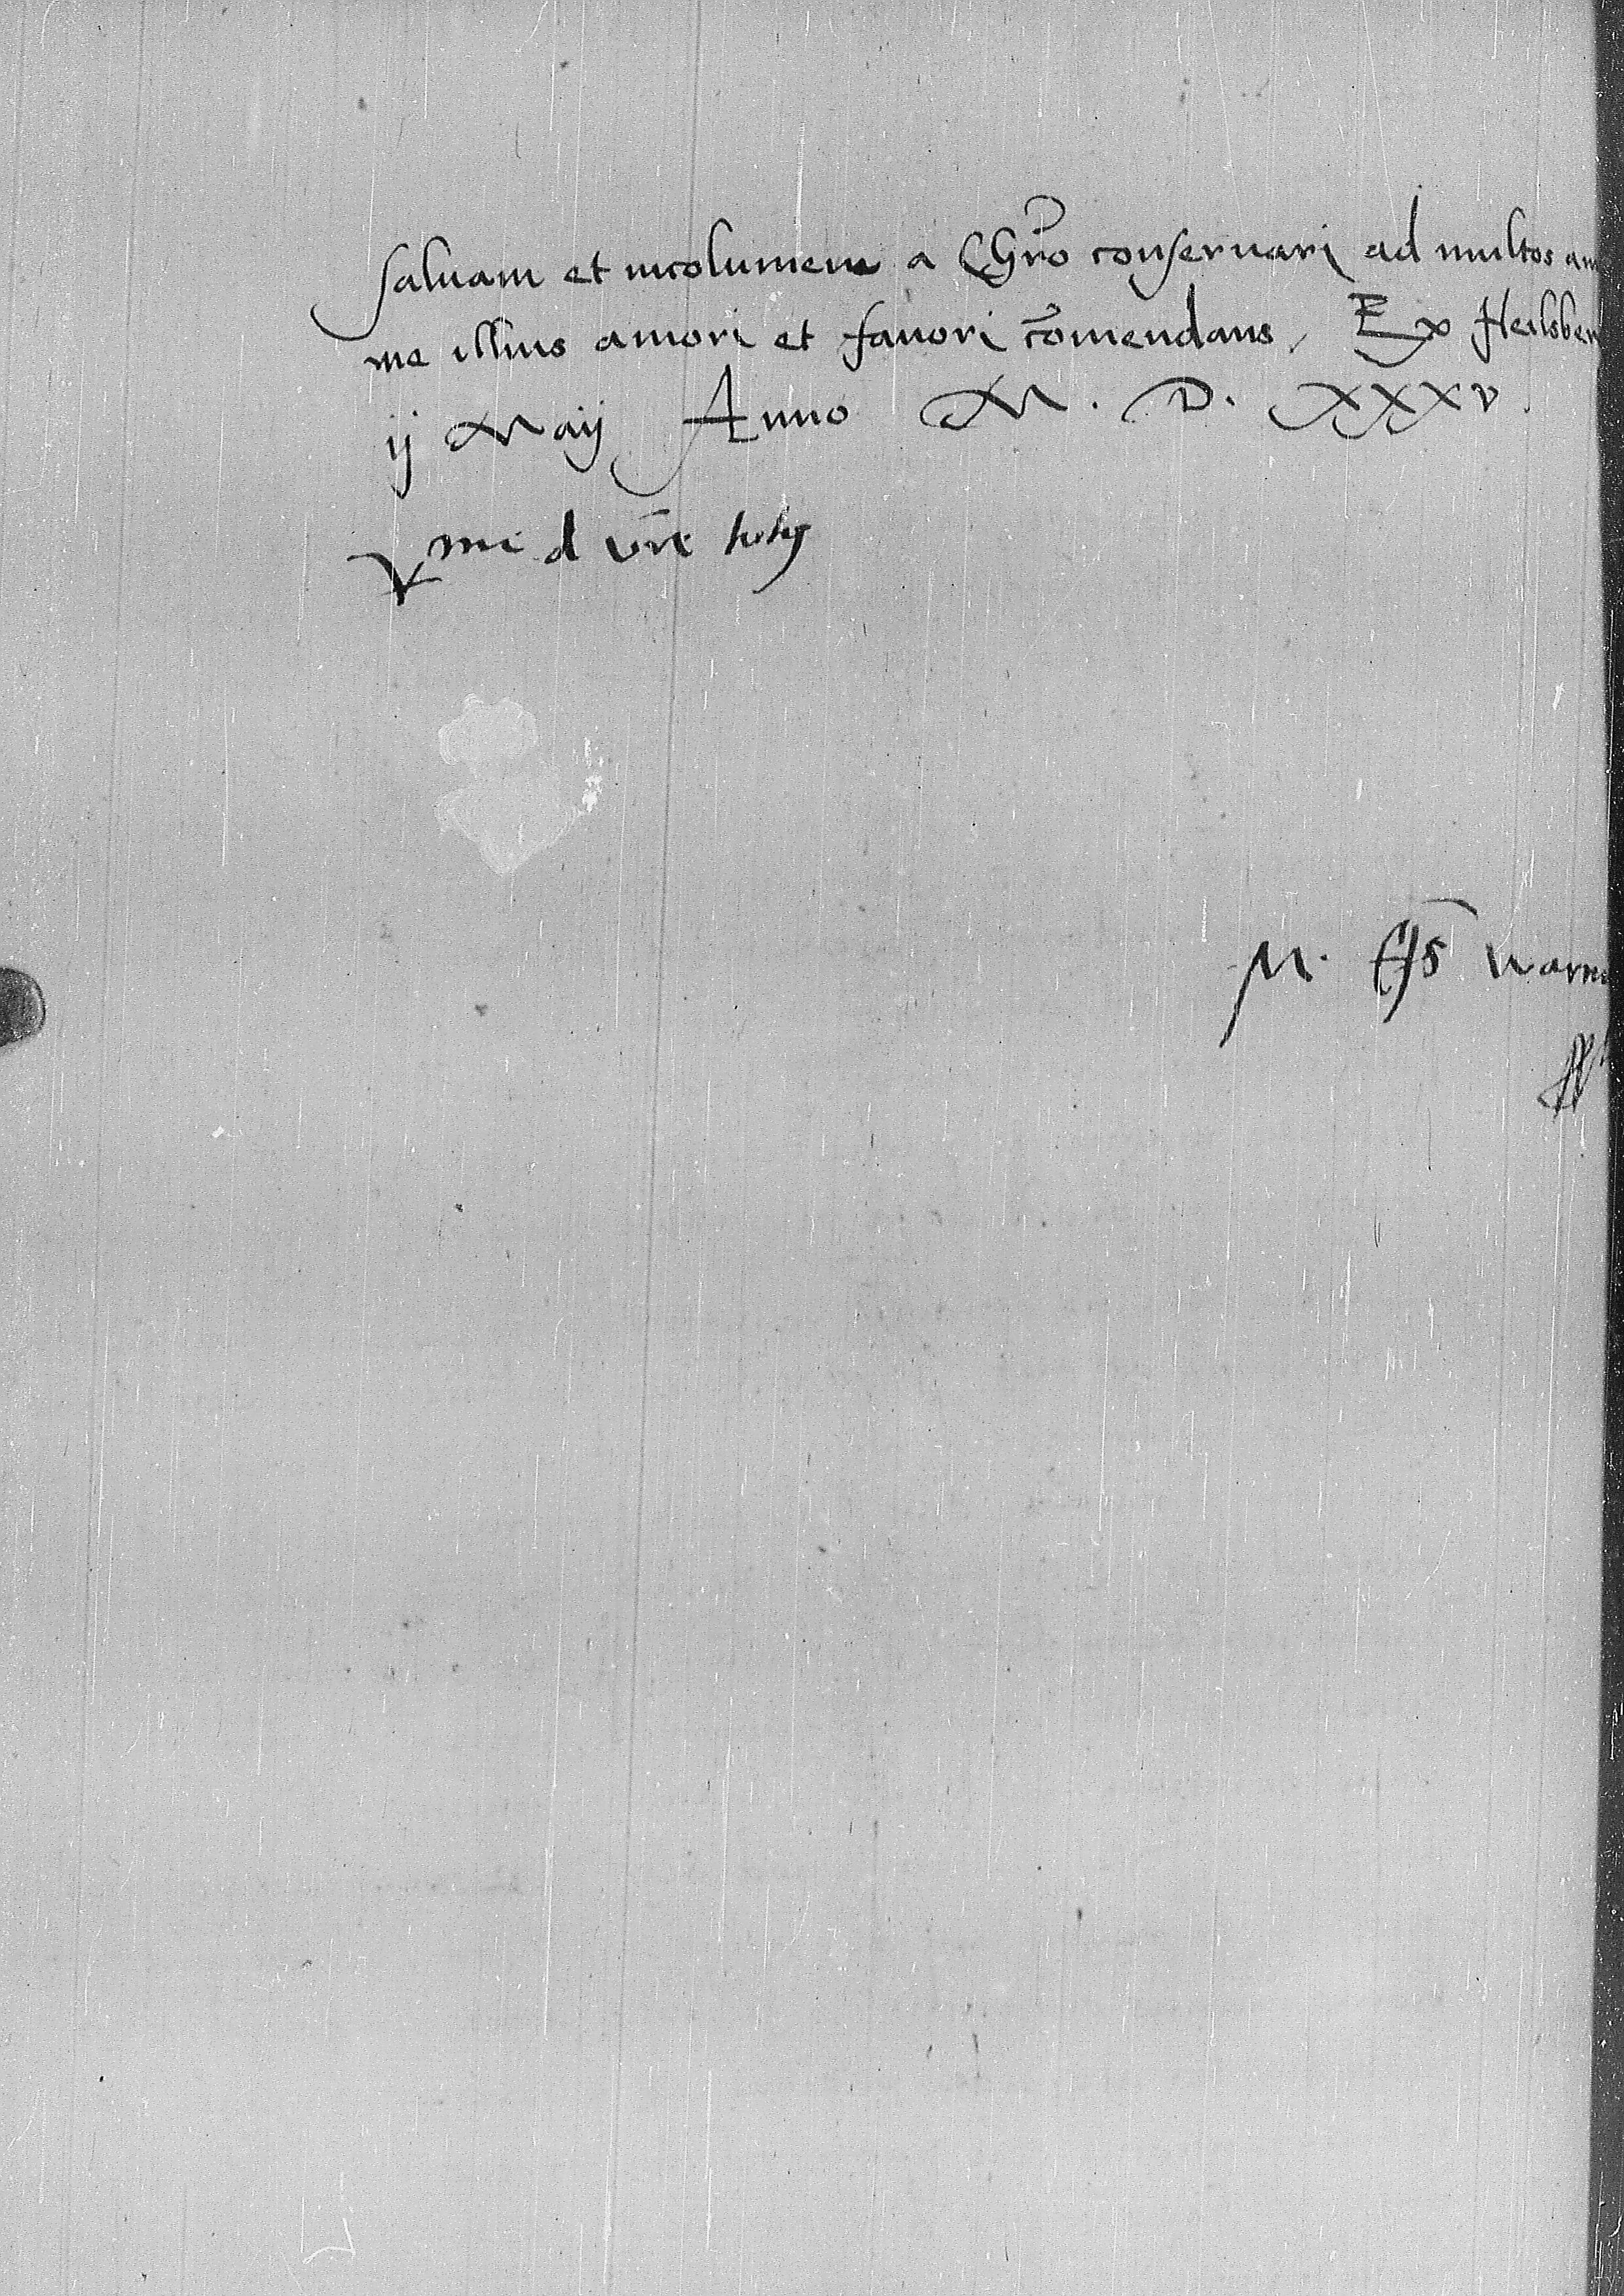 saluam et incolumem a Chro conseruari ad multos an
me illius amori et fauori comendans, Ex Heilsber
ij Maij Anno M. D. XXXV
Rme d vre
M. Eps Warm